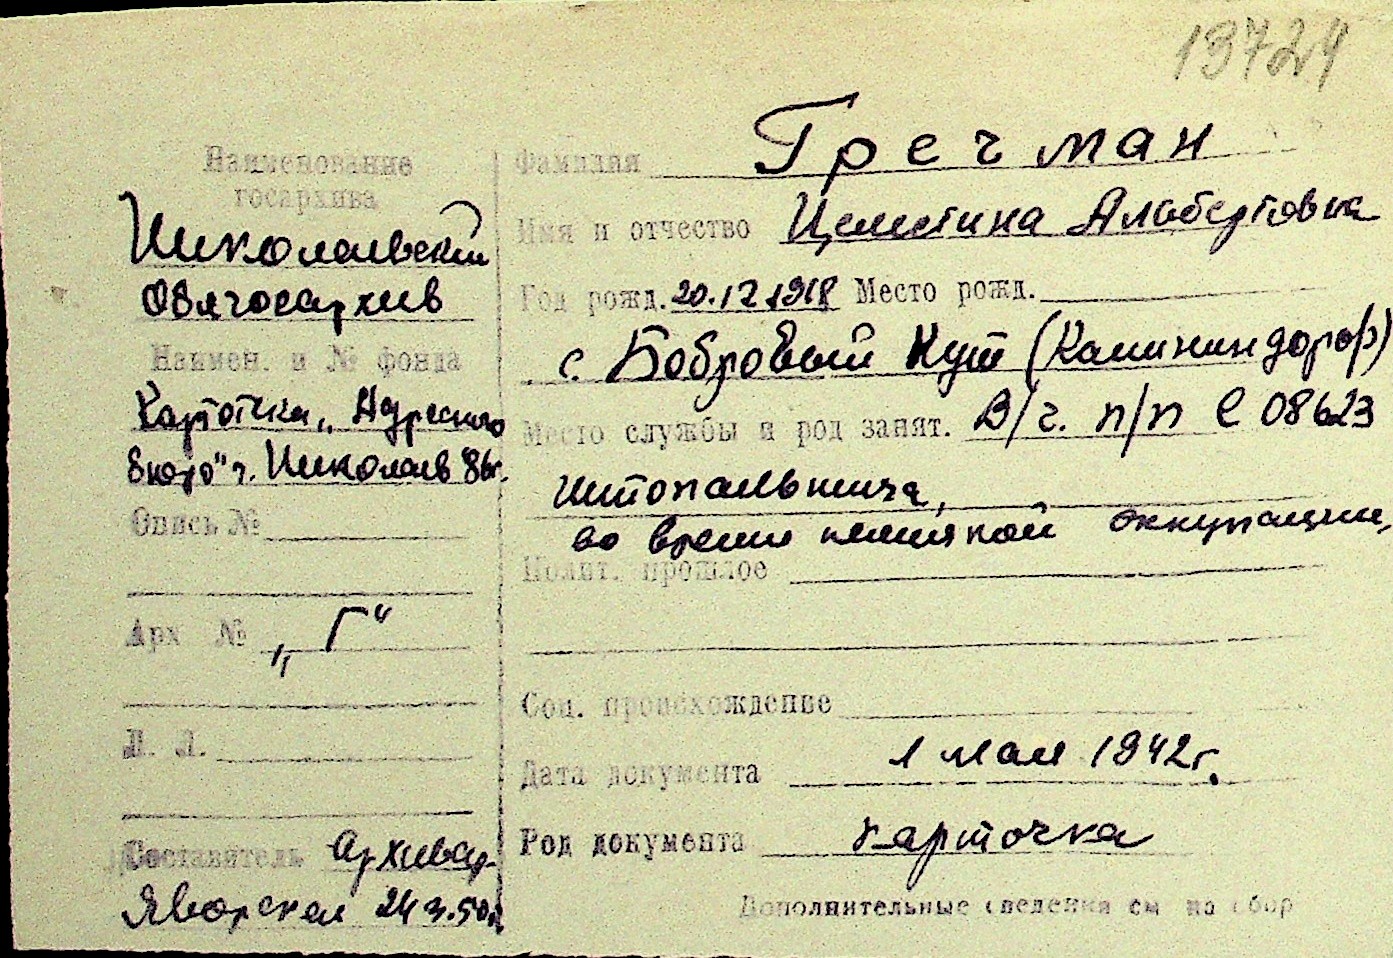 13724
Наименование
госархива
Николаевский
Облгосархив
Наимен. и № фонда
Картотека „Адресного
бюро" г. Николаев
Опись №
Арх № „Г"
Л. Л.
Составитель Архивар
Яворская 24 3.50г.
Фамилия Гречман
Имя и отчество Целестина Альбертовна
Год рожд. 20.12.1918 Место рожд.
с. Бобровый Кут (Калининдорф)
Место службы и род занят. В/ч. п/п 08623
штопальница,
во время немецкой оккупации,
Полит. прошлое
Соц. происхождение
Дата документа 1 мая 1942г.
Род документа карточка
Дополнительные сведения см на обор